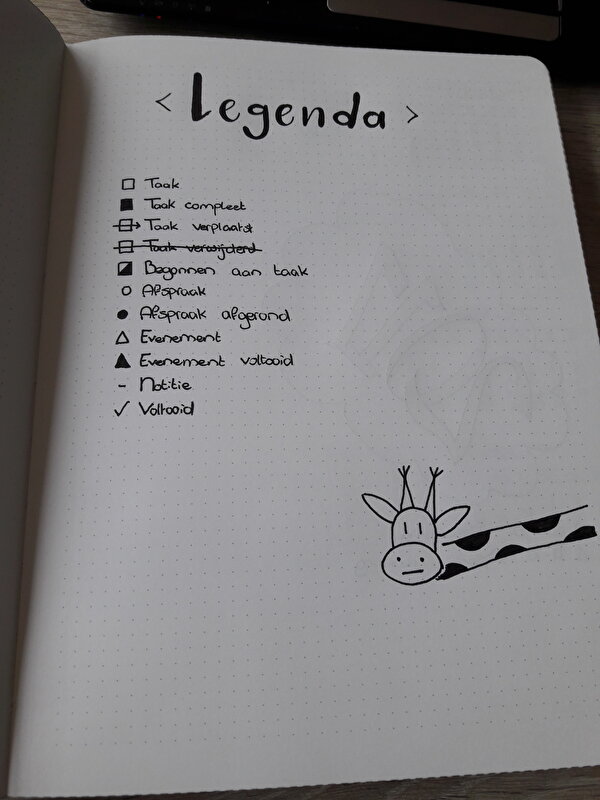 < Legenda >
□ Taak
■ Taak compleet
Taak verplaatst
Taak verwijderd
◪ Begonnen aan taak
○ Afspraak
● Afspraak afgerond
△ Evenement
▲ Evenement voltooid
- Notitie
✓ Voltooid